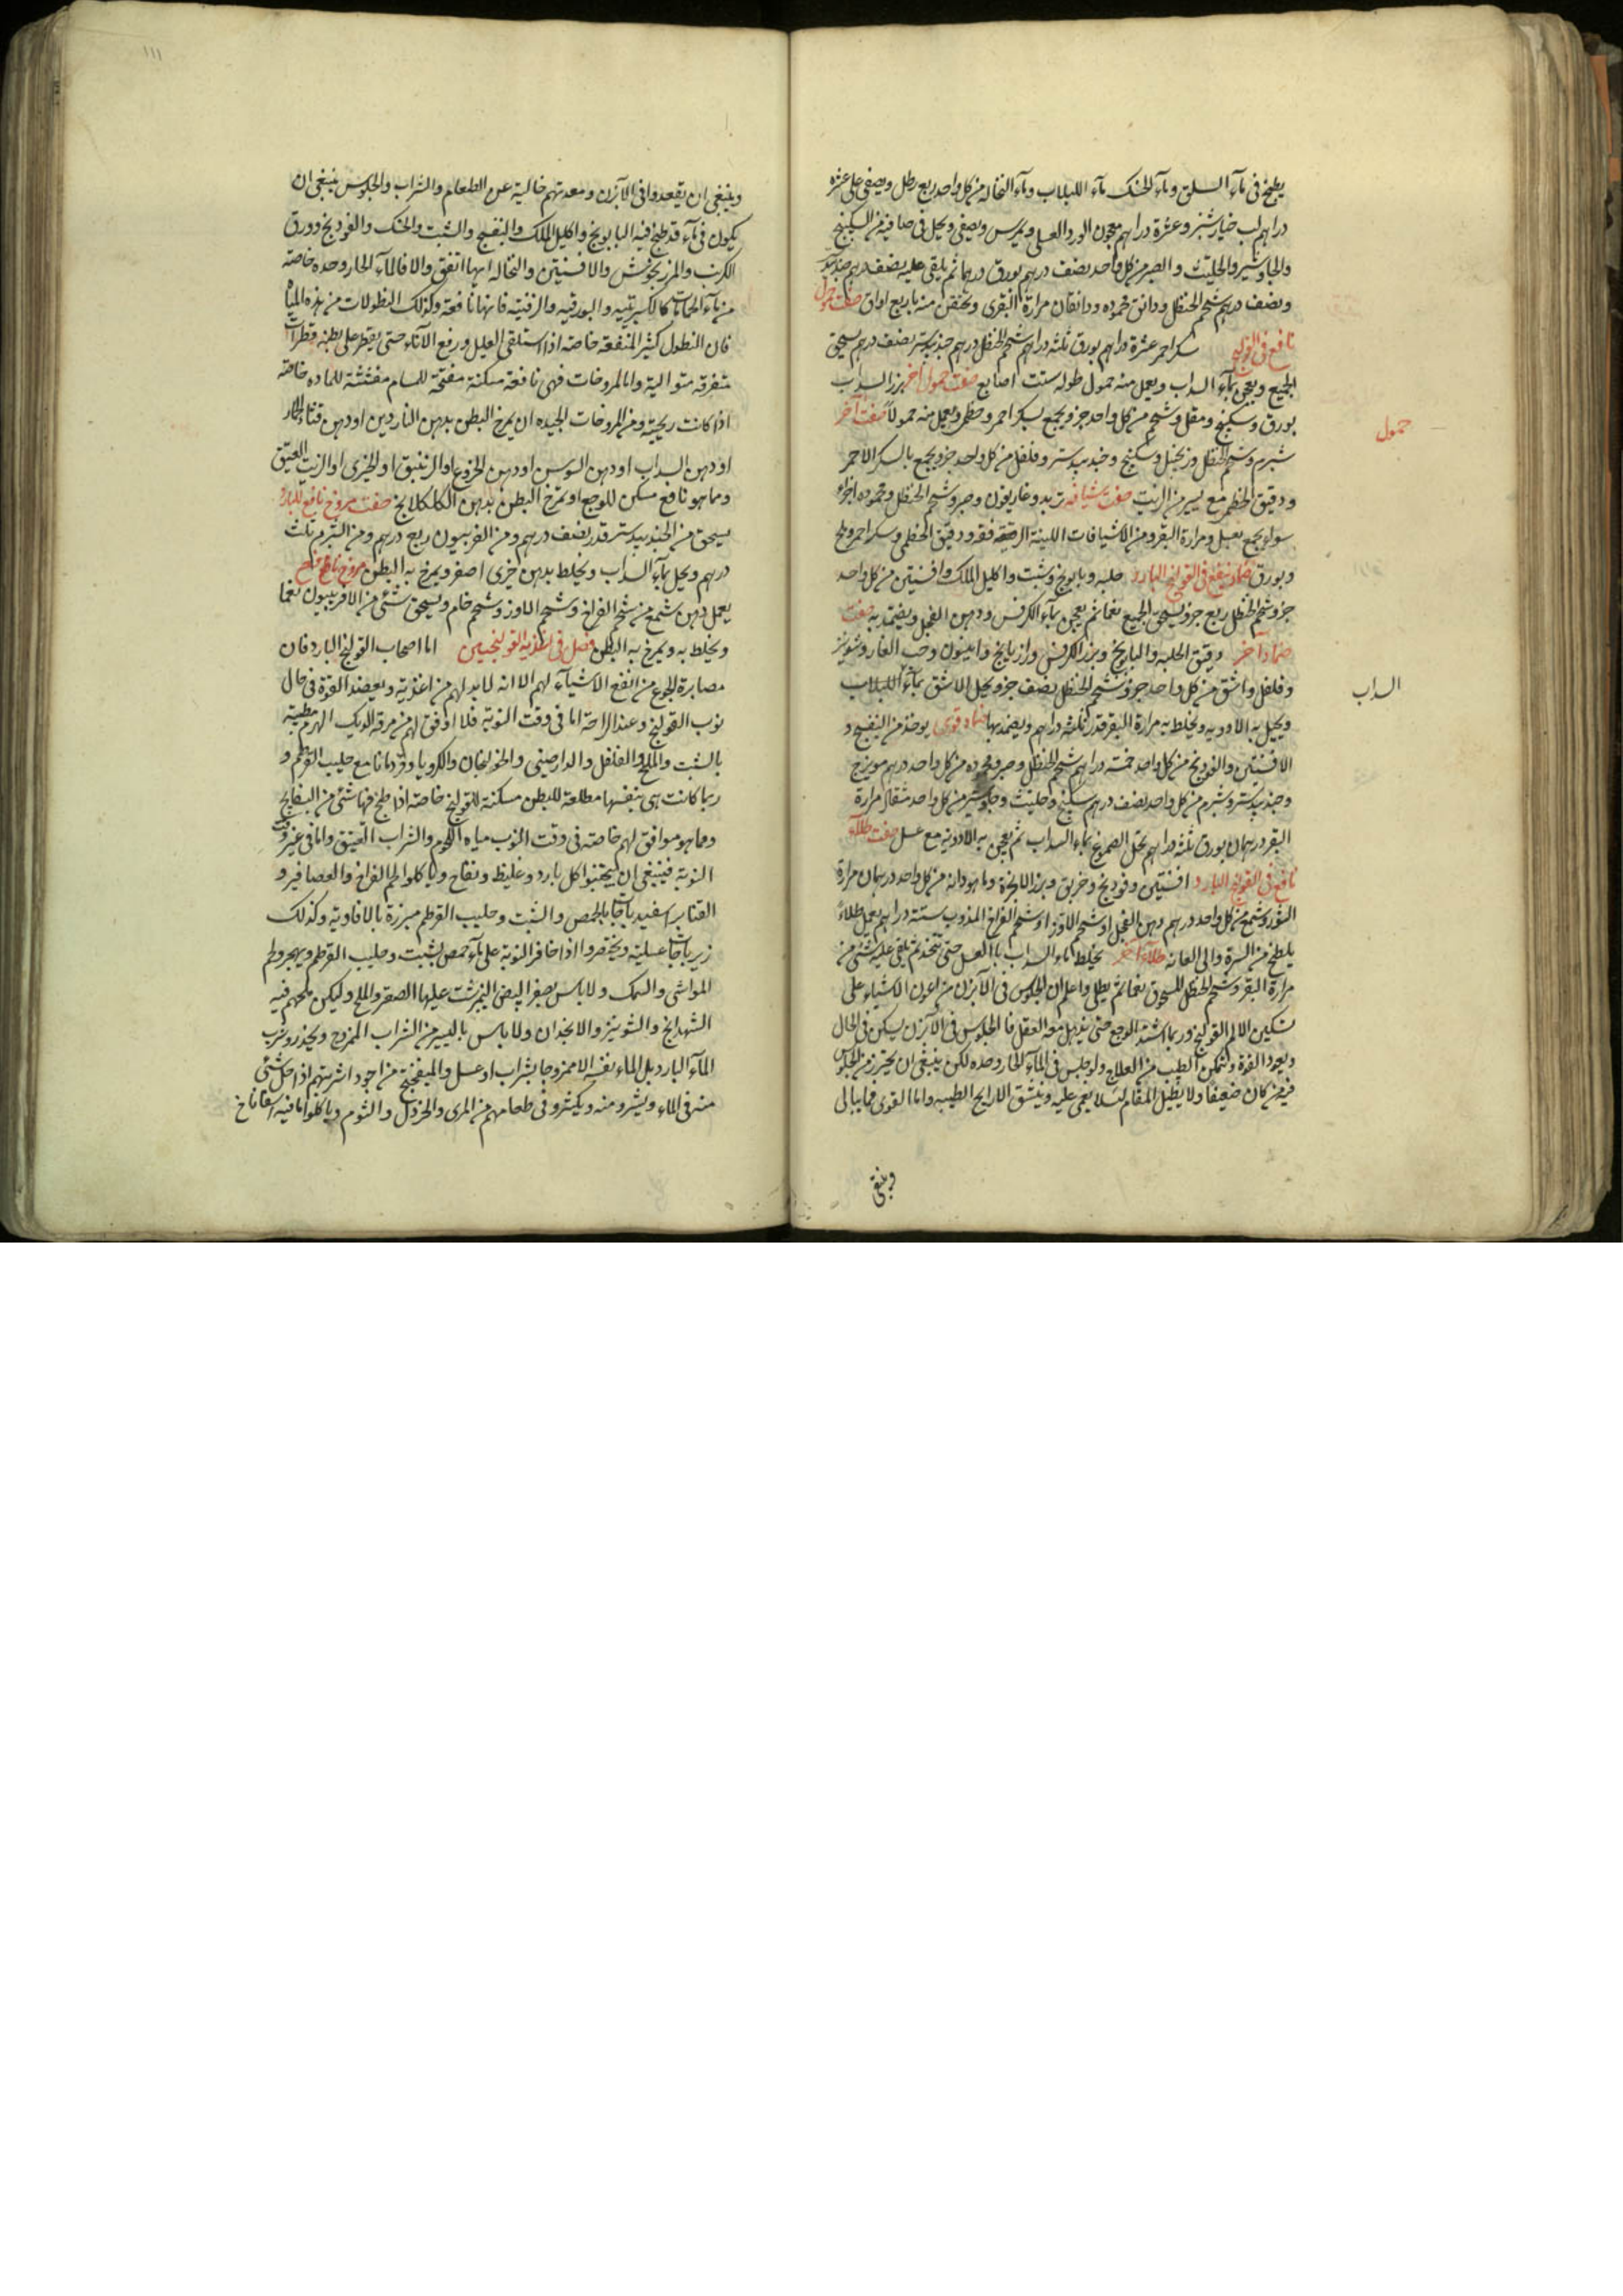 يطبخ في مآء السلق ومآء الحسك مآء اللبلاب ومآء النخاله من كل واحد ربع رطل ويصفى على عشره
دراهم لب خيارشنبر وعشرة دراهم معجون الورد العسلى ويمرس ويصفى ويحل في صافيه من السكبينج
والجاوشير والحلتيت و الصبر من كل واحد نصف درهم بورق درهما ثم يلقى عليه نصف درهم جندبيدستر
ونصف درهم شحم الحنظل ودانق محموده ودانقان مرارة البقرى ويحقن منه باربع اواق صفت حمول
نافع في القولنج سكر احمر عشرة دراهم بورق ثلثه دراهم شحم الحنظل درهم جندبيدستر نصف درهم يسحق
الجميع ويعجن بمآء السداب ويعمل منه حمول طوله ست اصابع صفت حمول آخر بزر السداب
حمول
بورق وسكبينج ومقل وشحم من كل واحد جزو يجمع بسكر احمر وخطمى ويعمل منه حمولا صفت آخر
شبرم وشحم الحنظل وزنجبيل وسكبينج وجندبيدستر وفلفل من كل واحد جزو يجمع بالسكر الاحمر
ودقيق الخطمى مع يسير من الزيت صفت شيافه تربد وغاريقون وصبر وشحم الحنظل ومحموده اجزاء
سواء يجمع بعسل ومرارة البقر ومن الاشيافات اللينة الرقيقة فقر ودقيق الخطمى وسكر احمر وملح
وبورق ضماد ينفع في القولنج البارد حلبه وبابونج وشبت واكليل الملك وافسنتين من كل واحد
جزو شحم الحنظل ربع جزو يسحق الجميع نعما ثم يعجن بمآء الكرفس ودهن الفجل ويضمد به صفت
ضماد آخر دقيق الحلبه والبابونج وبزر الكرفس ورازيانج وانيسون وحب الغار وشونيز
وفلفل واشق من كل واحد جزو شحم الحنظل نصف جزو يحل الاشق بمآء اللبلاب
السداب
ويجبل به الادويه ويخلط به مرارة البقر قدر ثلثه دراهم ويضمد بها ضماد قوى يوخذ من البنفسج و
الافسنتين والفودنج من كل واحد خمسة دراهم شحم الحنظل وصبر ومحموده من كل واحد درهم مويزج
وجندبيدستر وشبرم من كل واحد نصف درهم سكبينج وحلتيت وجاوشير من كل واحد مثقال مرارة
البقر درهمان بورق ثلثه دراهم تحل الصموغ بماء السداب ثم يعجن به الادوية مع عسل صفت طلآء
نافع في القولنج البارد افسنتين وفودنج وخربق وبزر الانجرة وماهودانه من كل واحد درهمان مرارة
الثور وشمع من كل واحد درهم دهن الفجل او شحم الاوز او شحم الفراخ المذوب ستة دراهم يعمل طلاءً
يلطخ من السرة والى العانه طلآء آخر يخلط ماء السداب با العسل حتى تثخذ ثم يلقى عليه شئ من
مرارة البقر وشحم الحنظل المسحوق نعما ثم يطلى واعلم ان الجلوس في الآبزن من اعون الاشياء على
تسكين الالم القولنج وربما اشتد الوجع حتى يذهل معه العقل فا الجلوس في الآبزن يسكن في الحال
ويعود القوة ويتمكن الطبيب من العلاج ولو جلس في المآء الحار وحده لكن ينبغى ان يحترز من الجلوس
فيه من كان ضعيفا ولا يطيل المقام لئلا يغمى عليه ويتنشق الارايح الطيبه واما القوى فما يبالى
وينبغى
١١١
وينبغى ان يقعدوا في الآبزن ومعدتهم خالية عن الطعام والشراب والجلوس ينبغى ان
يكون في مآء قد طبخ فيه البابونج واكليل الملك والبنفسج والشبت والحسك والفودنج وورق
الكرنب والمرزنجوش والافسنتين والنخاله ايها اتفق والا فالمآء الحار وحده خاصة
من مآء الحمات كالكبريتيه والبورقيه والزفتيه فانها نافعة وكذلك النطولات من هذه المياه
فان النطول كثير المنفعة خاصة اذا استلقى العليل ورفع الآناء حتى يقطر على بطنه قطرات
متفرقة متوالية واما المروخات فهى نافعة مسكنة مفتحة للمسام مفشته للماده خاصة
اذا كانت ريحية ومن المروخات الجيده ان يمرخ البطن بدهن الناردين او دهن قثاء الحمار
او دهن السداب او دهن السوسن او دهن الخروع او الزنبق او الخيرى او الزيت العتيق
ومما هو نافع مسكن للوجع او تمرخ البطن بدهن الكلكلانج صفت مروخ نافع للبارد
يسحق من الجندبيدستر قدر نصف درهم ومن الفربيون ربع درهم ومن الشبرم ثلث
درهم ويحل بمآء السداب ويخلط بدهن خيرى اصفر ويمرخ به البطن مروخ نافع
يعمل دهن شمع من شحم الفراخ وشحم الاوز وشحم خام ويسحق شئ من الافربيون نعما
ويخلط به ويمرخ به البطن فصل في اغذيه القولنجيين اما اصحاب القولنج البارد فان
مصابرة الجوع من انفع الاشيآء لهم الا انه لابد لهم من اغذية ويعضد القوة في حال
نوب القولنج وعند الراحة اما في وقت النوبة فلا اوفق لهم من مرقة الديك الهرم مطبة
بالشبت والملح والفلفل والدارصينى والخولنجان والكرويا وقردمانا مع حليب القرطم و
ربما كانت هى بنفسها مطلقة للبطن مسكنة للقولنج خاصة اذا طبخ فيها شئ من البسفايج
ومما هو موافق لهم خاصة في وقت النوب مياه اللحوم والشراب العتيق واما في غير وقت
النوبة فينبغى ان يجتنبوا كل بارد وغليظ ونفاخ وياكلوا لحم الفراخ والعصافير و
القنابر اسفيدباجا بالحمص والشبت وحليب القرطم مبزرة بالافاويه وكذلك
زيرباجات عسلية ويختصروا اذا خافر النوبة على مآء حمص بشبت وحليب القرطم ويهجروا لحم
المواشى والسمك ولا باس بصفر البيض النيمرشت عليها الصعتر والملح وليكن ملحهم فيه
الشهدانج والشونيز والانجدان ولا باس باليسير من الشراب الممزوج ويحذر وشرب
المآء البارد بل الماء نفسه الا ممزوجا بشراب او عسل والميفختج من اجود اشربتهم اذا حل شئ
منه في الماء ويشرو منه ويكثرو في طعامهم من المرى والخردل والثوم وياكلوا ما فيه اسفاناخ